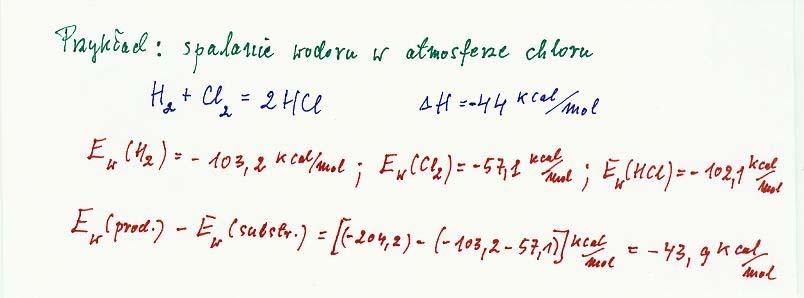 Przykład: spalanie wodoru w atmosferze chloru
H₂ + Cl₂ = 2HCl ΔH = -44 kcal/mol
E_w(H₂) = -103,2 kcal/mol; E_w(Cl₂) = -57,1 kcal/mol; E_w(HCl) = -102,1 kcal/mol
E_w(prod.) - E_w(substr.) = [(-204,2) - (-103,2 - 57,1)] kcal/mol = -43,9 kcal/mol